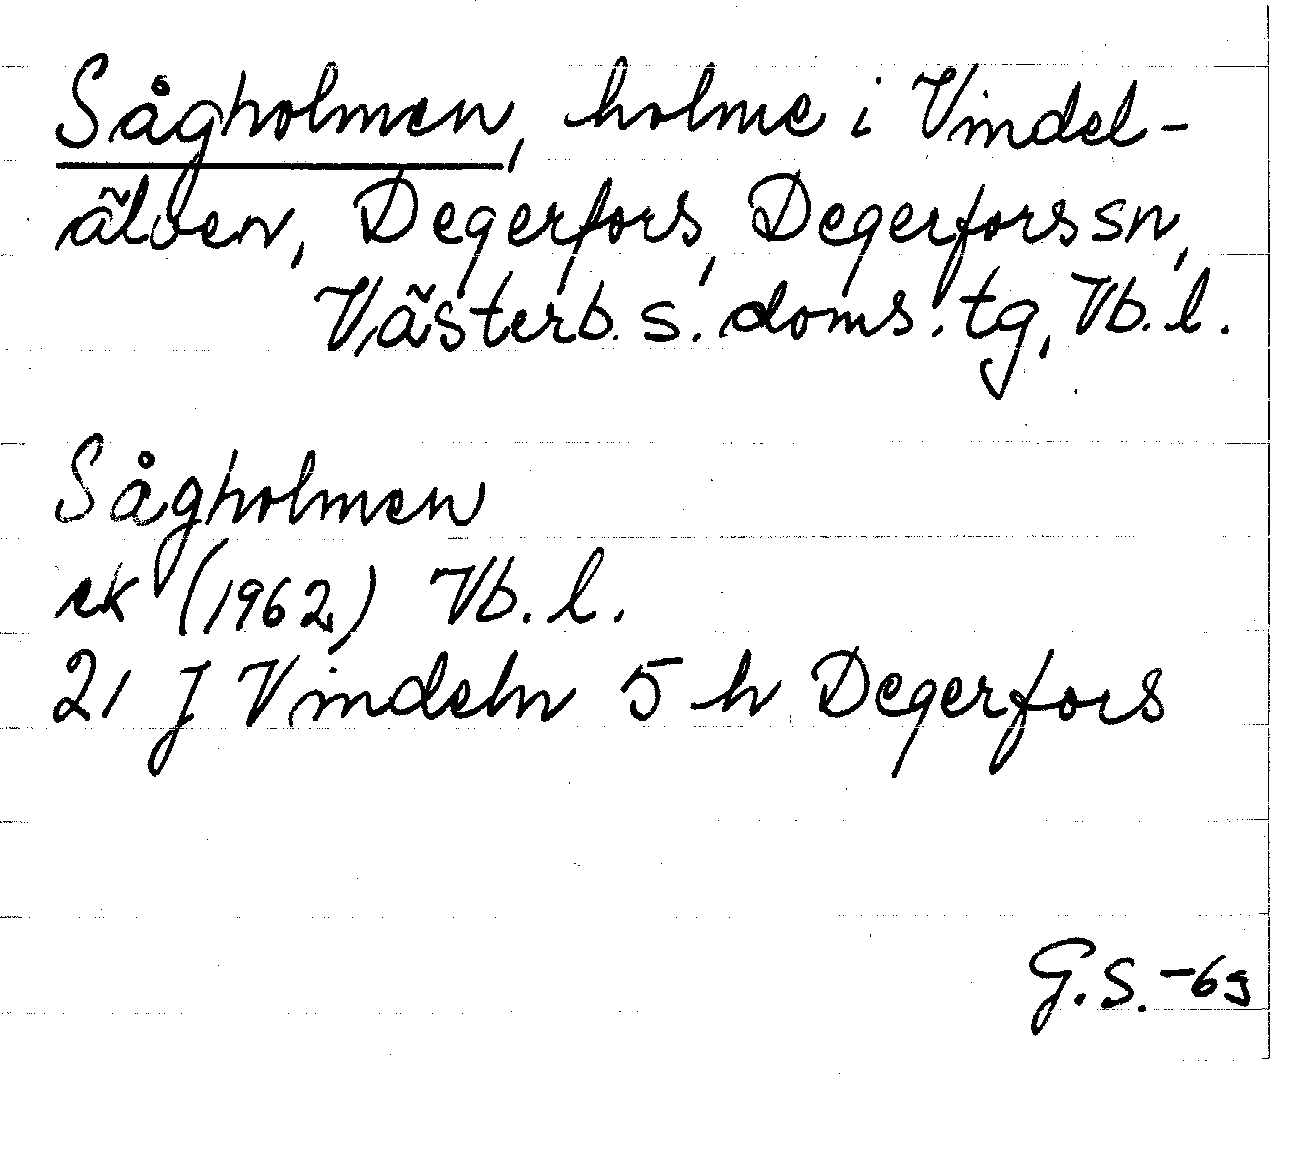 Sågholmen, holme i Vindel-
älven, Degerfors, Degerfors sn,
Västerb. s. doms. tg, Vb. l.
Sågholmen
ek (1962) Vb. l.
21 J Vindeln 5 h Degerfors
G.S. -69